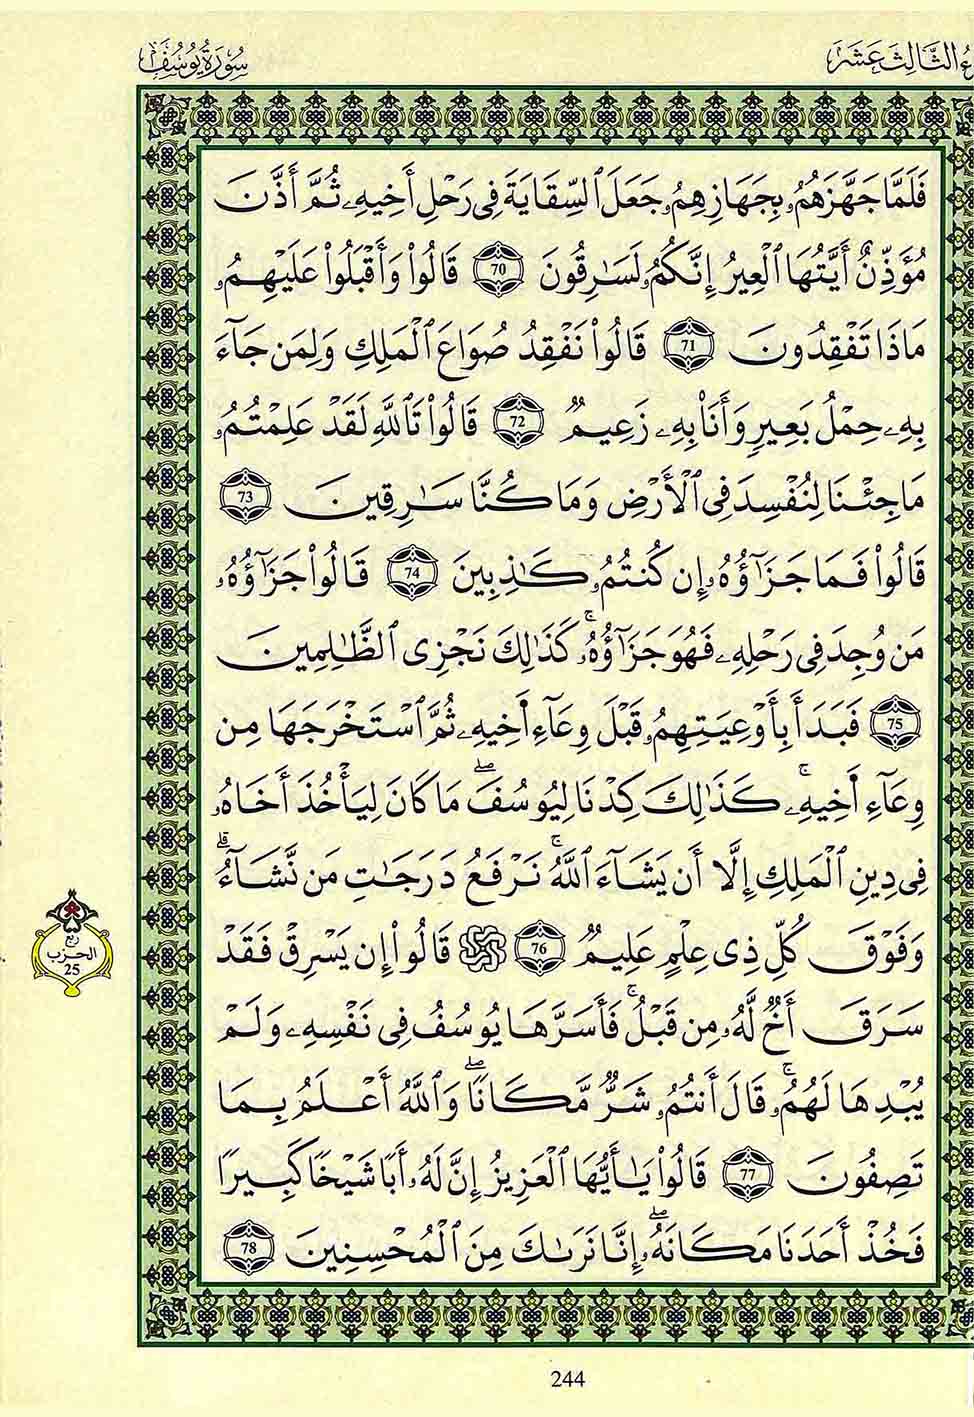 سُورَةُ يُوسُفَ
ءُ الثَّالِثَ عَشَرَ
فَلَمَّا جَهَّزَهُمُۥ بِجَهَازِهِمُۥ جَعَلَ ٱلسِّقَايَةَ فِى رَحْلِ أَخِيهِۦ ثُمَّ أَذَّنَ
مُؤَذِّنٌ أَيَّتُهَا ٱلْعِيرُ إِنَّكُمُۥ لَسَٰرِقُونَ 70 قَالُوا۟ وَأَقْبَلُوا۟ عَلَيْهِمُۥ
مَاذَا تَفْقِدُونَ 71 قَالُوا۟ نَفْقِدُ صُوَاعَ ٱلْمَلِكِ وَلِمَن جَآءَ
بِهِۦ حِمْلُ بَعِيرٍ وَأَنَا۠ بِهِۦ زَعِيمٌ 72 قَالُوا۟ تَٱللَّهِ لَقَدْ عَلِمْتُمُۥ
مَا جِئْنَا لِنُفْسِدَ فِى ٱلْأَرْضِ وَمَا كُنَّا سَٰرِقِينَ 73
قَالُوا۟ فَمَا جَزَٰٓؤُهُۥ إِن كُنتُمُۥ كَٰذِبِينَ 74 قَالُوا۟ جَزَٰٓؤُهُۥ
مَن وُجِدَ فِى رَحْلِهِۦ فَهُوَ جَزَٰٓؤُهُۥۚ كَذَٰلِكَ نَجْزِى ٱلظَّٰلِمِينَ
75 فَبَدَأَ بِأَوْعِيَتِهِمُۥ قَبْلَ وِعَآءِ اَ۬خِيهِۦ ثُمَّ ٱسْتَخْرَجَهَا مِن
وِعَآءِ اَ۬خِيهِۦۚ كَذَٰلِكَ كِدْنَا لِيُوسُفَۖ مَا كَانَ لِيَأْخُذَ أَخَاهُۥ
فِى دِينِ ٱلْمَلِكِ إِلَّآ أَن يَشَآءَ ٱللَّهُۚ نَرْفَعُ دَرَجَٰتِ مَن نَّشَآءُۗ
وَفَوْقَ كُلِّ ذِى عِلْمٍ عَلِيمٌ 76 ۞ قَالُوٓا۟ إِن يَسْرِقْ فَقَدْ
سَرَقَ أَخٌ لَّهُۥ مِن قَبْلُۚ فَأَسَرَّهَا يُوسُفُ فِى نَفْسِهِۦ وَلَمْ
يُبْدِهَا لَهُمُۥۚ قَالَ أَنتُمُۥ شَرٌّ مَّكَانًاۖ وَٱللَّهُ أَعْلَمُ بِمَا
تَصِفُونَ 77 قَالُوا۟ يَٰٓأَيُّهَا ٱلْعَزِيزُ إِنَّ لَهُۥٓ أَبًا شَيْخًا كَبِيرًا
فَخُذْ أَحَدَنَا مَكَانَهُۥٓۖ إِنَّا نَرَىٰكَ مِنَ ٱلْمُحْسِنِينَ 78
ربع
الحزب
25
244